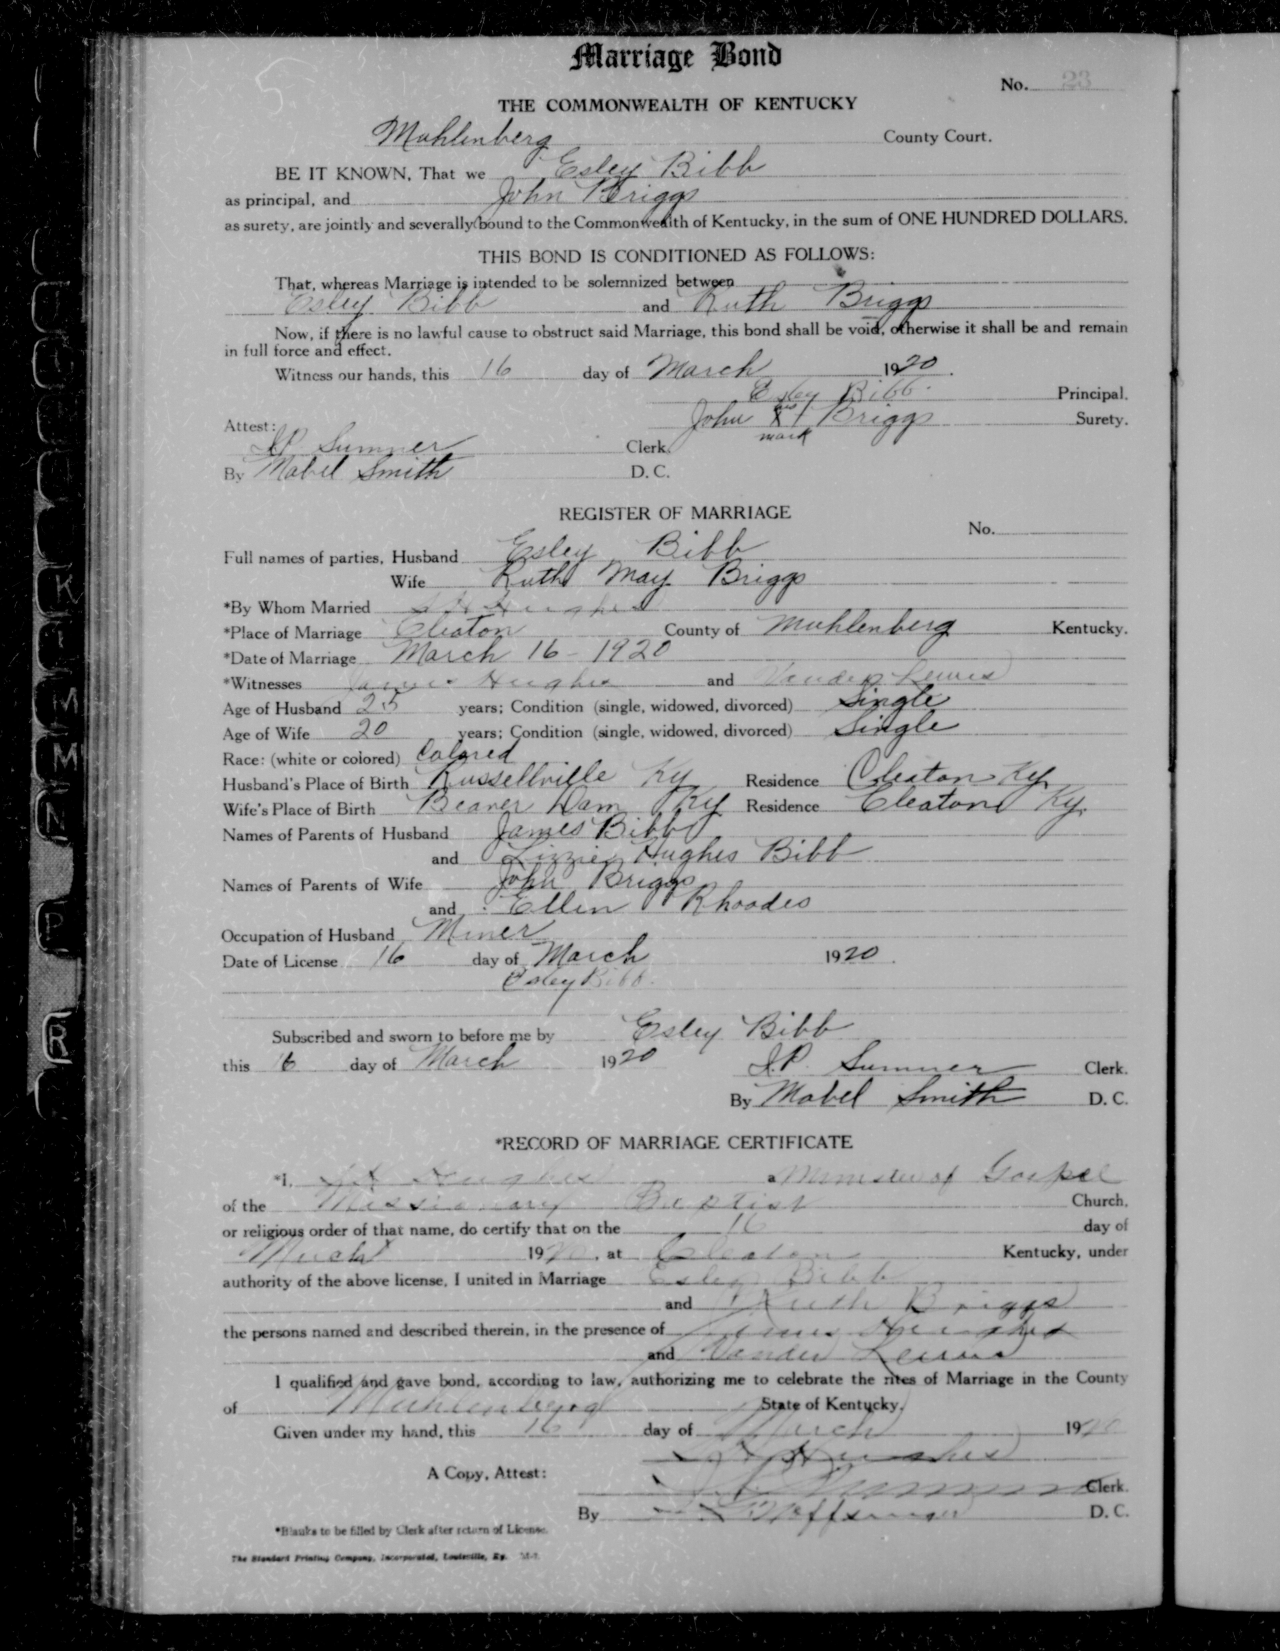 Marriage Bond
No. 23
THE COMMONWEALTH OF KENTUCKY
Muhlenberg County Court.
BE IT KNOWN, That we Esley Bibb
as principal, and John Briggs
as surety, are jointly and severally bound to the Commonwealth of Kentucky, in the sum of ONE HUNDRED DOLLARS.
THIS BOND IS CONDITIONED AS FOLLOWS:
That, whereas Marriage is intended to be solemnized between
Esley Bibb and Ruth Briggs
Now, if there is no lawful cause to obstruct said Marriage, this bond shall be void, otherwise it shall be and remain
in full force and effect.
Witness our hands, this 16 day of March 1920.
Esley Bibb. Principal.
John his X mark Briggs Surety.
Attest:
J.P. Sumner Clerk.
By Mabel Smith D. C.
REGISTER OF MARRIAGE
No.
Full names of parties, Husband Esley Bibb
Wife Ruth May Briggs
*By Whom Married Hughes
*Place of Marriage Cleaton County of Muhlenberg Kentucky.
*Date of Marriage March 16 - 1920
*Witnesses James Hughes and Vander Lewis
Age of Husband 25 years; Condition (single, widowed, divorced) Single
Age of Wife 20 years; Condition (single, widowed, divorced) Single
Race: (white or colored) Colored
Husband's Place of Birth Russellville Ky Residence Cleaton Ky.
Wife's Place of Birth Beaver Dam Ky Residence Cleaton Ky.
Names of Parents of Husband James Bibb
and Lizzie Hughes Bibb
Names of Parents of Wife John Briggs
and Ellen Rhoades
Occupation of Husband Miner
Date of License 16 day of March 1920.
Esley Bibb.
Subscribed and sworn to before me by Esley Bibb
this 16 day of March 1920
J.P. Sumner Clerk.
By Mabel Smith D. C.
*RECORD OF MARRIAGE CERTIFICATE
*I, Hughes a Minister of Gospel
of the Missionary Baptist Church,
or religious order of that name, do certify that on the 16 day of
March 1920, at Cleaton Kentucky, under
authority of the above license, I united in Marriage Esley Bibb
and Ruth Briggs
the persons named and described therein, in the presence of James Hughes
and Vander Lewis
I qualified and gave bond, according to law, authorizing me to celebrate the rites of Marriage in the County
of Muhlenberg State of Kentucky.
Given under my hand, this 16 day of March 1920
Hughes
A Copy, Attest:
Clerk.
By D. C.
*Blanks to be filled by Clerk after return of License.
The Standard Printing Company, Incorporated, Louisville, Ky.